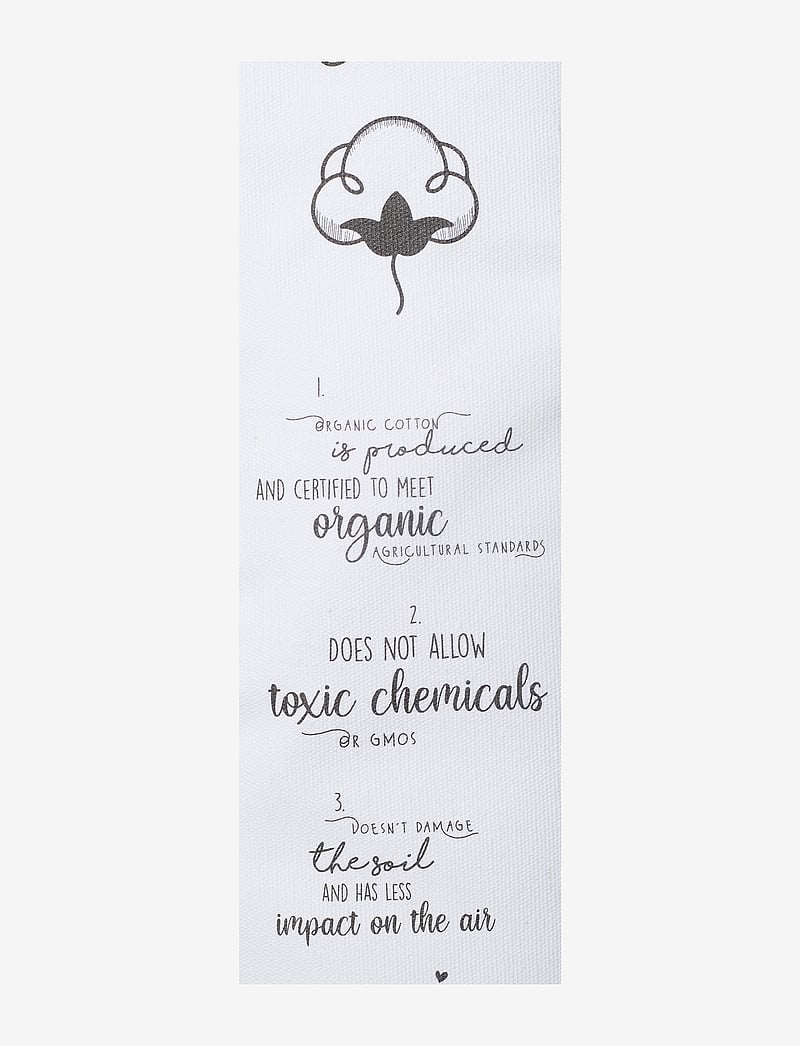 1.
ORGANIC COTTON
is produced
AND CERTIFIED TO MEET
organic
AGRICULTURAL STANDARDS
2.
DOES NOT ALLOW
toxic chemicals
OR GMOS
3.
DOESN'T DAMAGE
the soil
AND HAS LESS
impact on the air